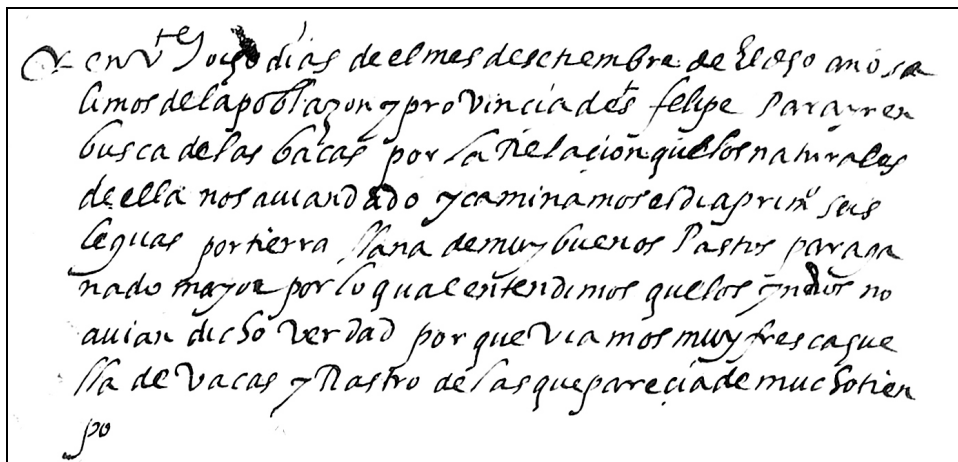 en Vte y ocho dias de el mes de setiembre de el dcho año sa
limos de la poblaçon y proVincia de St felipe Para yr en
busca de las bacas por la Relaçion que los naturales
de ella nos auian dado y caminamos el dia primo seis
leguas por tierra llana de muy buenos Pastos para ga
nado mayor por lo qual entendimos que los yndios no
auian dicho verdad por que Viamos muy fresca gue
lla de Vacas y Rastro de las que pareçia de mucho tien
po